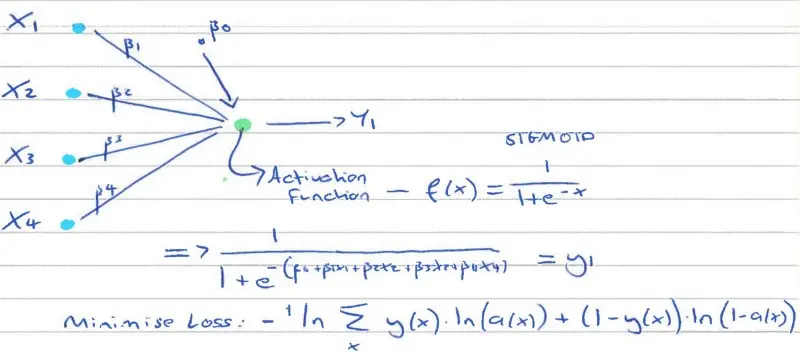 X1
β1
β0
X2
β2
Y1
X3
β3
SIGMOID
Activation
Function – f(x) = 1 / 1+e^-x
X4
β4
=> 1 / 1 + e^-(β0+β1x1+β2x2+β3x3+β4x4) = y1
Minimise Loss: - 1/n ∑x y(x)·ln(a(x)) + (1-y(x))·ln(1-a(x))